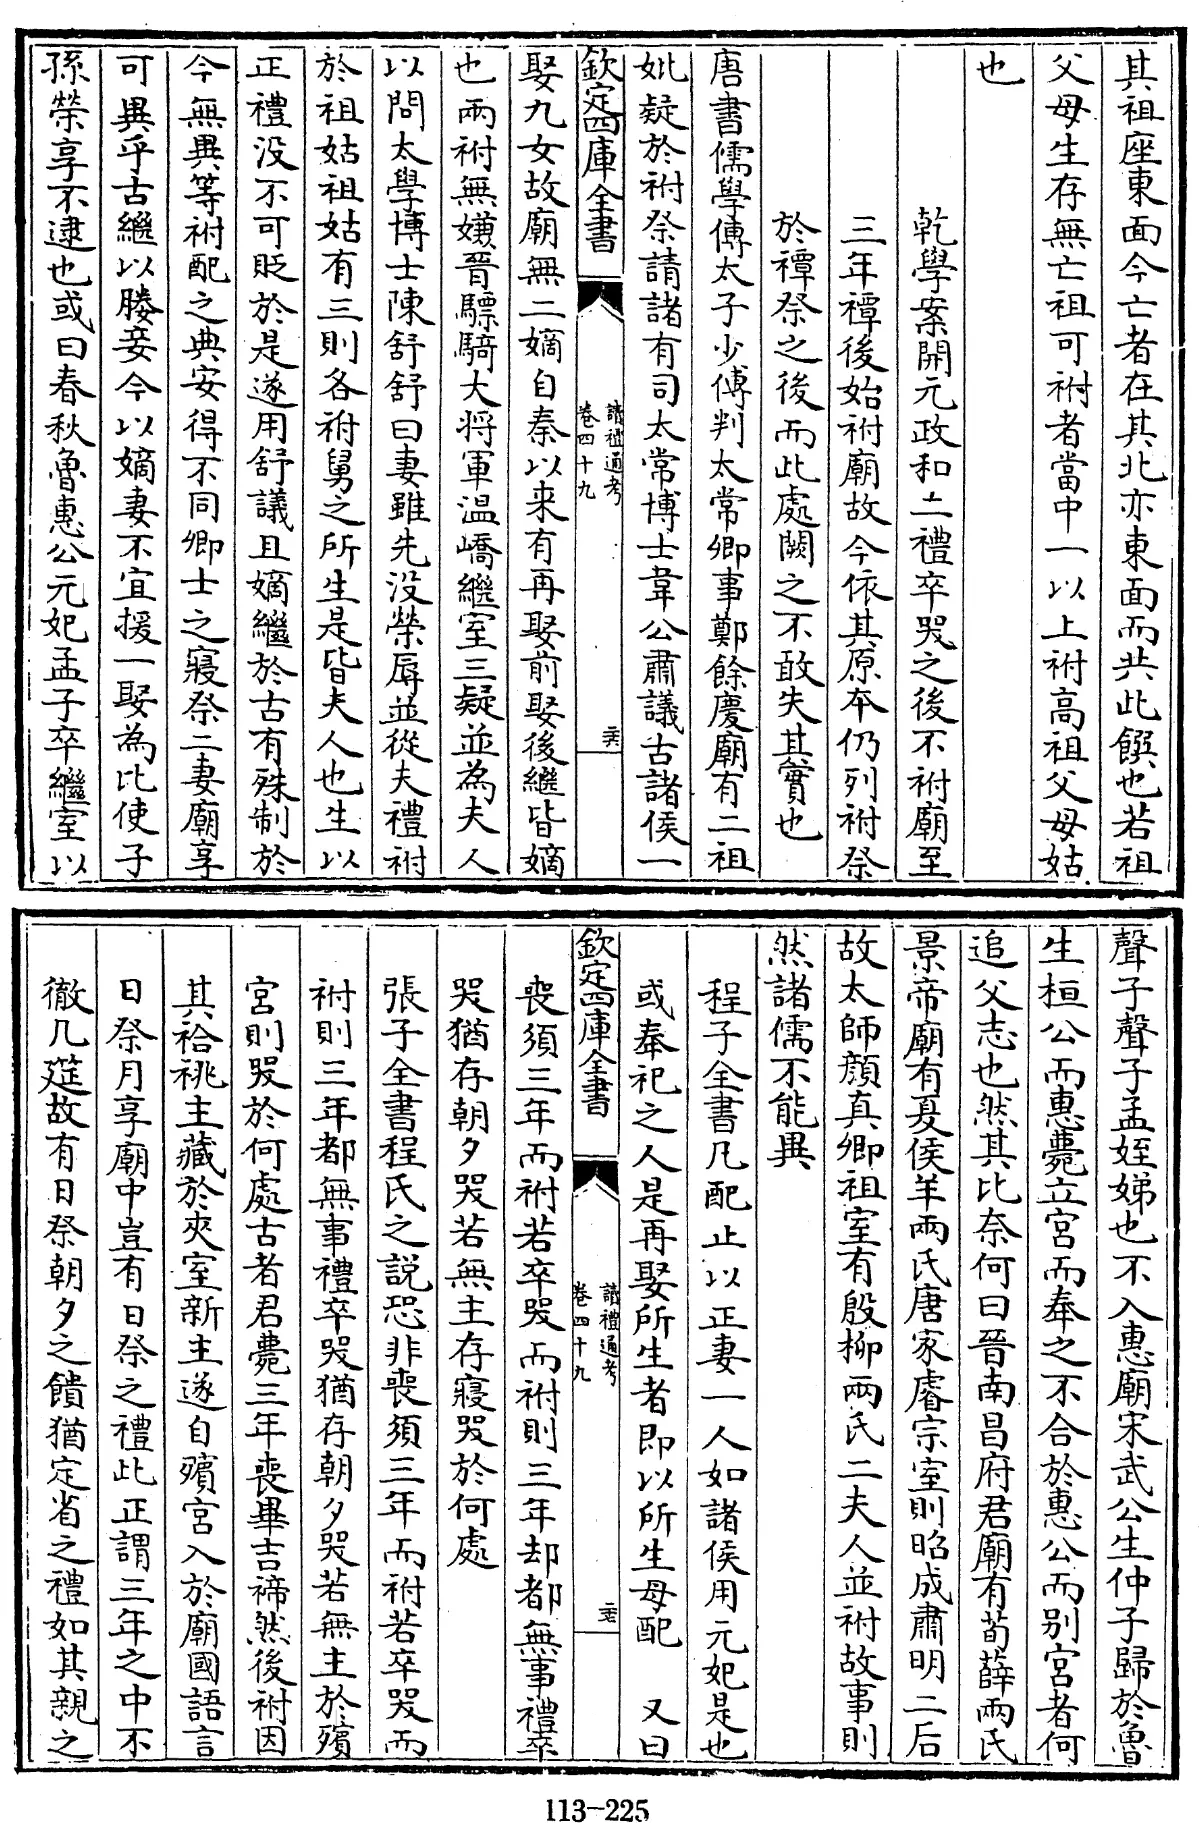 其祖座東面今亡者在其北亦東面而共此饌也若祖
父母生存無亡祖可祔者當中一以上祔高祖父母姑
也
乾學案開元政和二禮卒哭之後不祔廟至
三年禫後始祔廟故今依其原本仍列祔祭
於禫祭之後而此處闕之不敢失其實也
唐書儒學傳太子少傅判太常卿事鄭餘慶廟有二祖
妣疑於祔祭請諸有司太常博士韋公肅議古諸侯一
欽定四庫全書
讀禮通考
卷四十九
娶九女故廟無二嫡自秦以来有再娶前娶後繼皆嫡
也兩祔無嫌晉驃騎大将軍温嶠繼室三疑並為夫人
以問太學博士陳舒舒曰妻雖先没榮辱並從夫禮祔
於祖姑祖姑有三則各祔舅之所生是皆夫人也生以
正禮没不可貶於是遂用舒議且嫡繼於古有殊制於
今無異等祔配之典安得不同卿士之寢祭二妻廟享
可異乎古繼以媵妾今以嫡妻不宜援一娶為比使子
孫榮享不逮也或曰春秋魯惠公元妃孟子卒繼室以
聲子聲子孟姪娣也不入惠廟宋武公生仲子歸於魯
生桓公而惠薨立宮而奉之不合於惠公而别宮者何
追父志也然其比奈何曰晉南昌府君廟有荀薛兩氏
景帝廟有夏侯羊兩氏唐家睿宗室則昭成肅明二后
故太師顔真卿祖室有殷柳兩氏二夫人並祔故事則
然諸儒不能異
程子全書凡配止以正妻一人如諸侯用元妃是也
或奉祀之人是再娶所生者即以所生母配 又曰
欽定四庫全書
讀禮通考
卷四十九
喪須三年而祔若卒哭而祔則三年却都無事禮卒
哭猶存朝夕哭若無主存寢哭於何處
張子全書程氏之説恐非喪須三年而祔若卒哭而
祔則三年都無事禮卒哭猶存朝夕哭若無主於殯
宮則哭於何處古者君薨三年喪畢吉禘然後祔因
其祫祧主藏於夾室新主遂自殯宮入於廟國語言
日祭月享廟中豈有日祭之禮此正謂三年之中不
徹几筵故有日祭朝夕之饋猶定省之禮如其親之
113-225